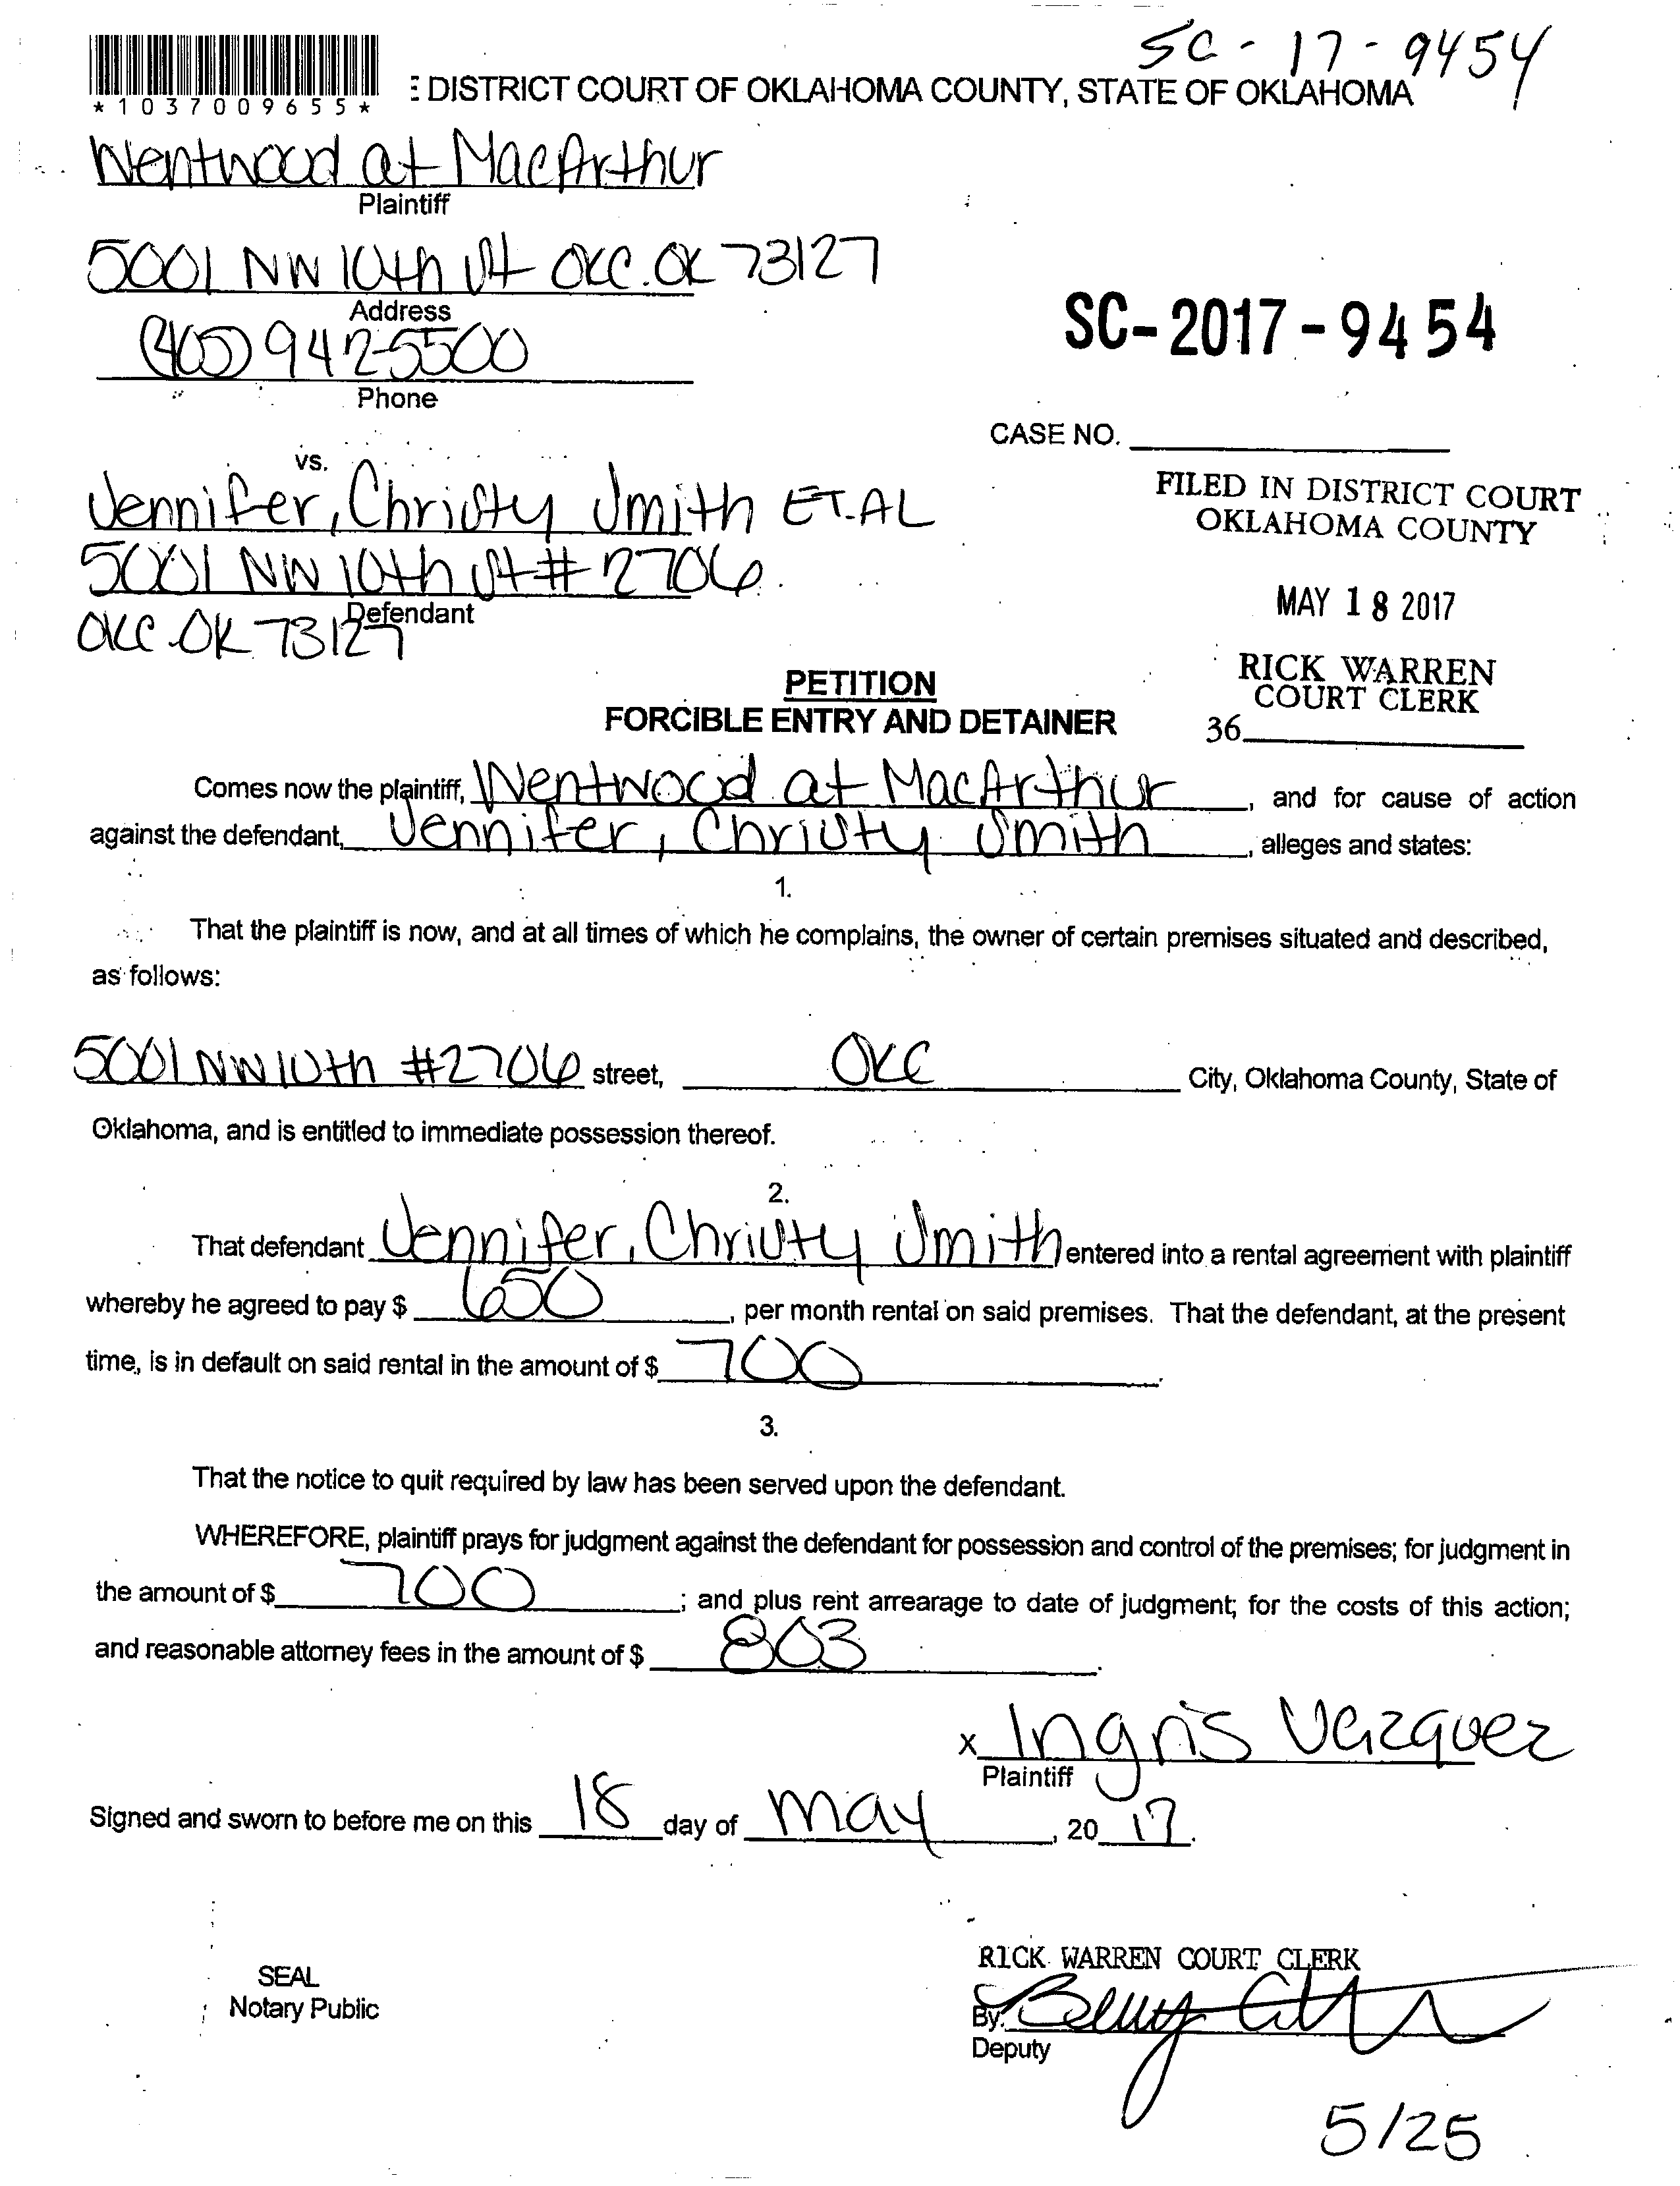 SC-17-9454
*1037009655*
E DISTRICT COURT OF OKLAHOMA COUNTY, STATE OF OKLAHOMA
Wentwood at MacArthur
Plaintiff
5001 NW 10th St OKC.OK 73127
Address
(405) 942-5500
Phone
SC-2017-9454
CASE NO.
vs.
Jennifer, Christy Smith ET.AL
5001 NW 10th St # 2706
Defendant
OKC OK 73127
FILED IN DISTRICT COURT
OKLAHOMA COUNTY
MAY 18 2017
RICK WARREN
COURT CLERK
36
PETITION
FORCIBLE ENTRY AND DETAINER
Comes now the plaintiff, Wentwood at MacArthur, and for cause of action
against the defendant, Jennifer, Christy Smith, alleges and states:
1.
That the plaintiff is now, and at all times of which he complains, the owner of certain premises situated and described,
as follows:
5001 NW 10th #2706 street, OKC City, Oklahoma County, State of
Oklahoma, and is entitled to immediate possession thereof.
2.
That defendant Jennifer, Christy Smith entered into a rental agreement with plaintiff
whereby he agreed to pay $ 650, per month rental on said premises. That the defendant, at the present
time, is in default on said rental in the amount of $ 700.
3.
That the notice to quit required by law has been served upon the defendant.
WHEREFORE, plaintiff prays for judgment against the defendant for possession and control of the premises; for judgment in
the amount of $ 700; and plus rent arrearage to date of judgment; for the costs of this action;
and reasonable attorney fees in the amount of $ 803.
x Ingris Vazquez
Plaintiff
Signed and sworn to before me on this 18 day of may, 20 17.
SEAL
Notary Public
RICK WARREN COURT CLERK
By:
Deputy
5/25